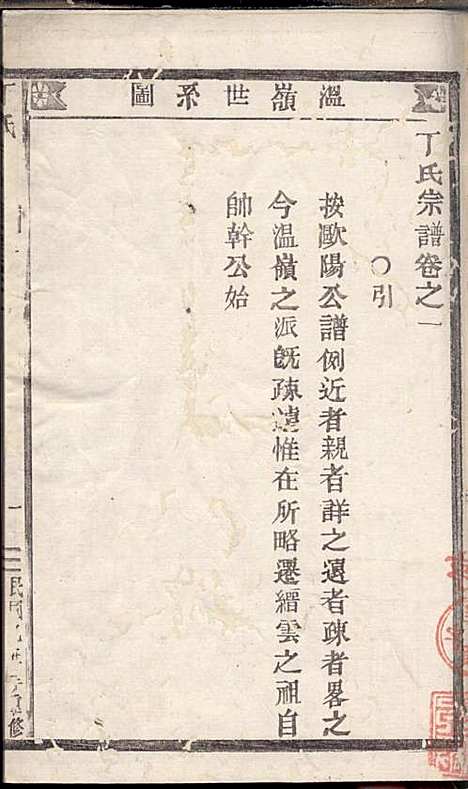 溫嶺世系圖
丁氏宗譜卷之一
○引
按歐陽公譜例近者親者詳之遠者疎者畧之
今溫嶺之派既疎遠惟在所略遷縉雲之祖自
帥幹公始